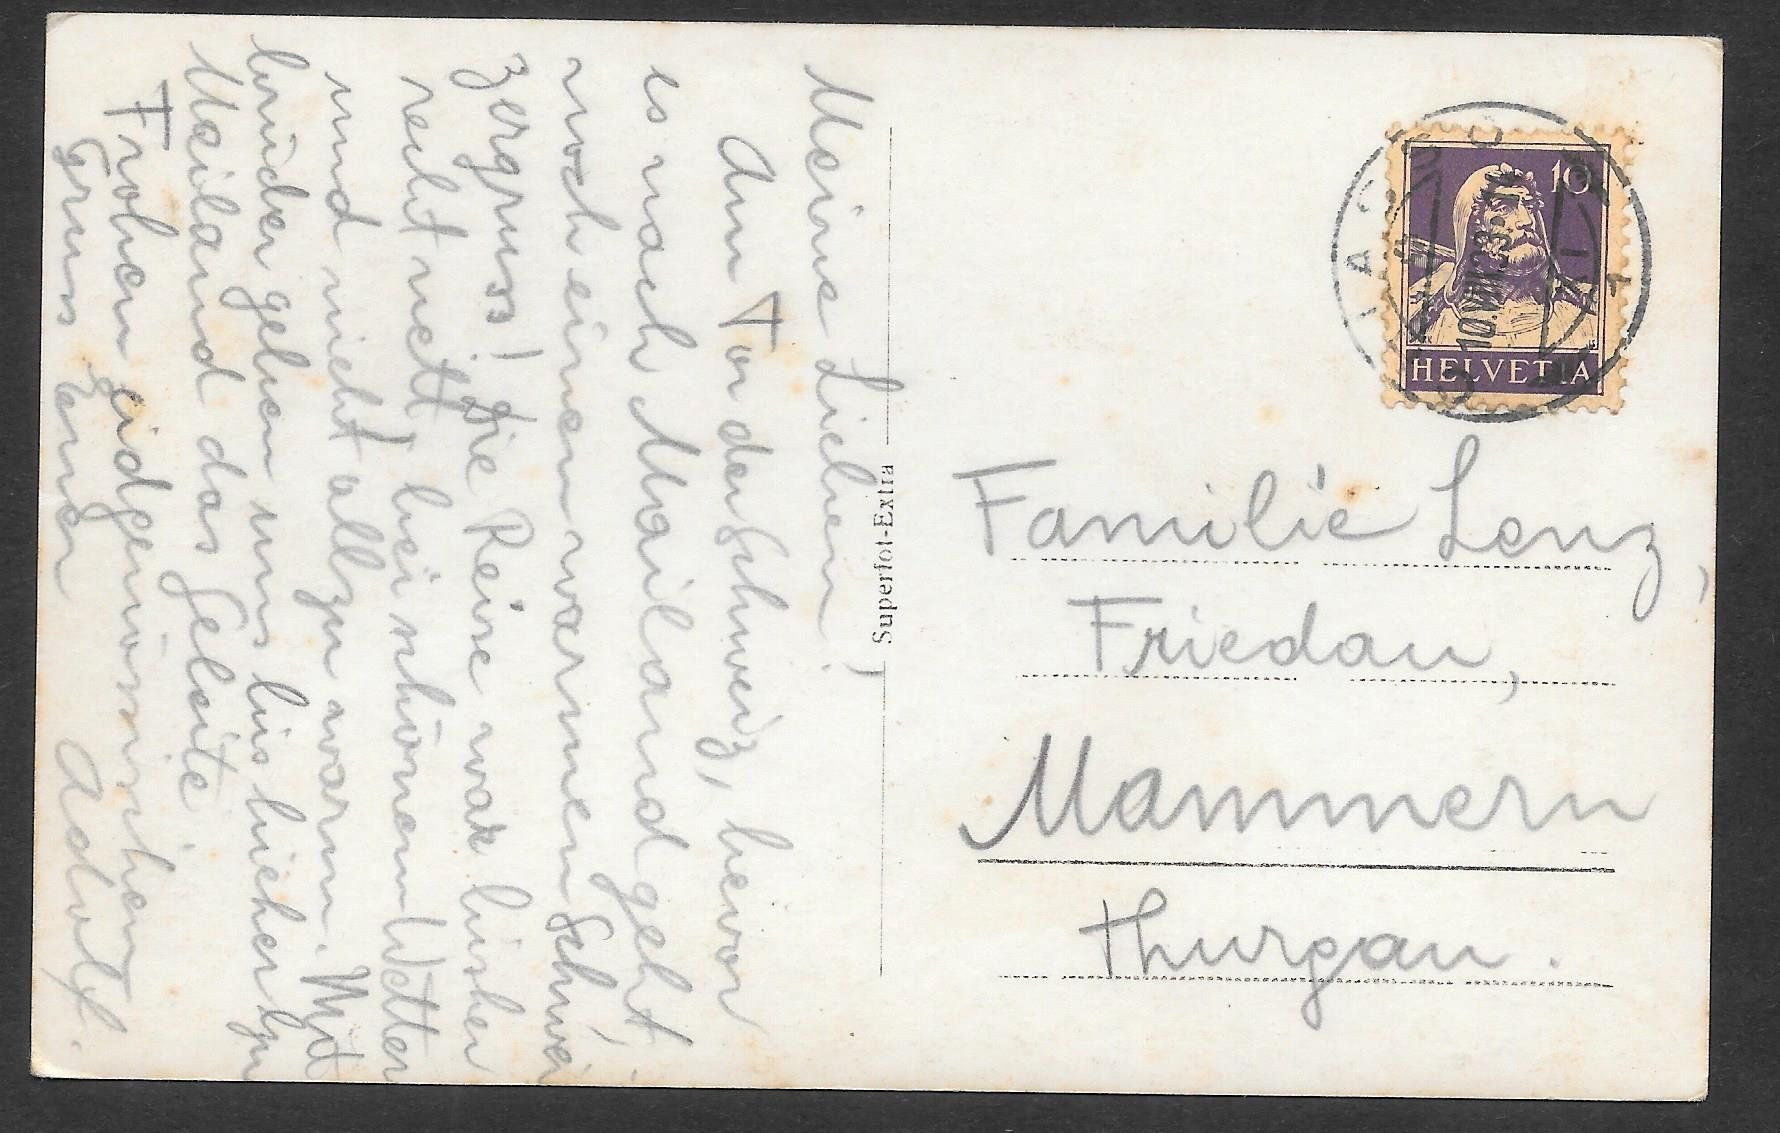 Meine Lieben!
Am Tor der Schweiz, bevor
es nach Mailand geht,
noch einen warmen Schwei-
zergruss! Die Reise war bisher
recht nett, bei schönem Wetter
und nicht allzu warm. Mit
brüder gehen uns bis hieher
Mailand das Geleite.
Frohen eidgenössischen
Gruss Euer Adolf.
Superfot-Extra
10
HELVETIA
CHIASSO
10.VIII.33
1
Familie Lenz,
Friedau,
Mammern
Thurgau.